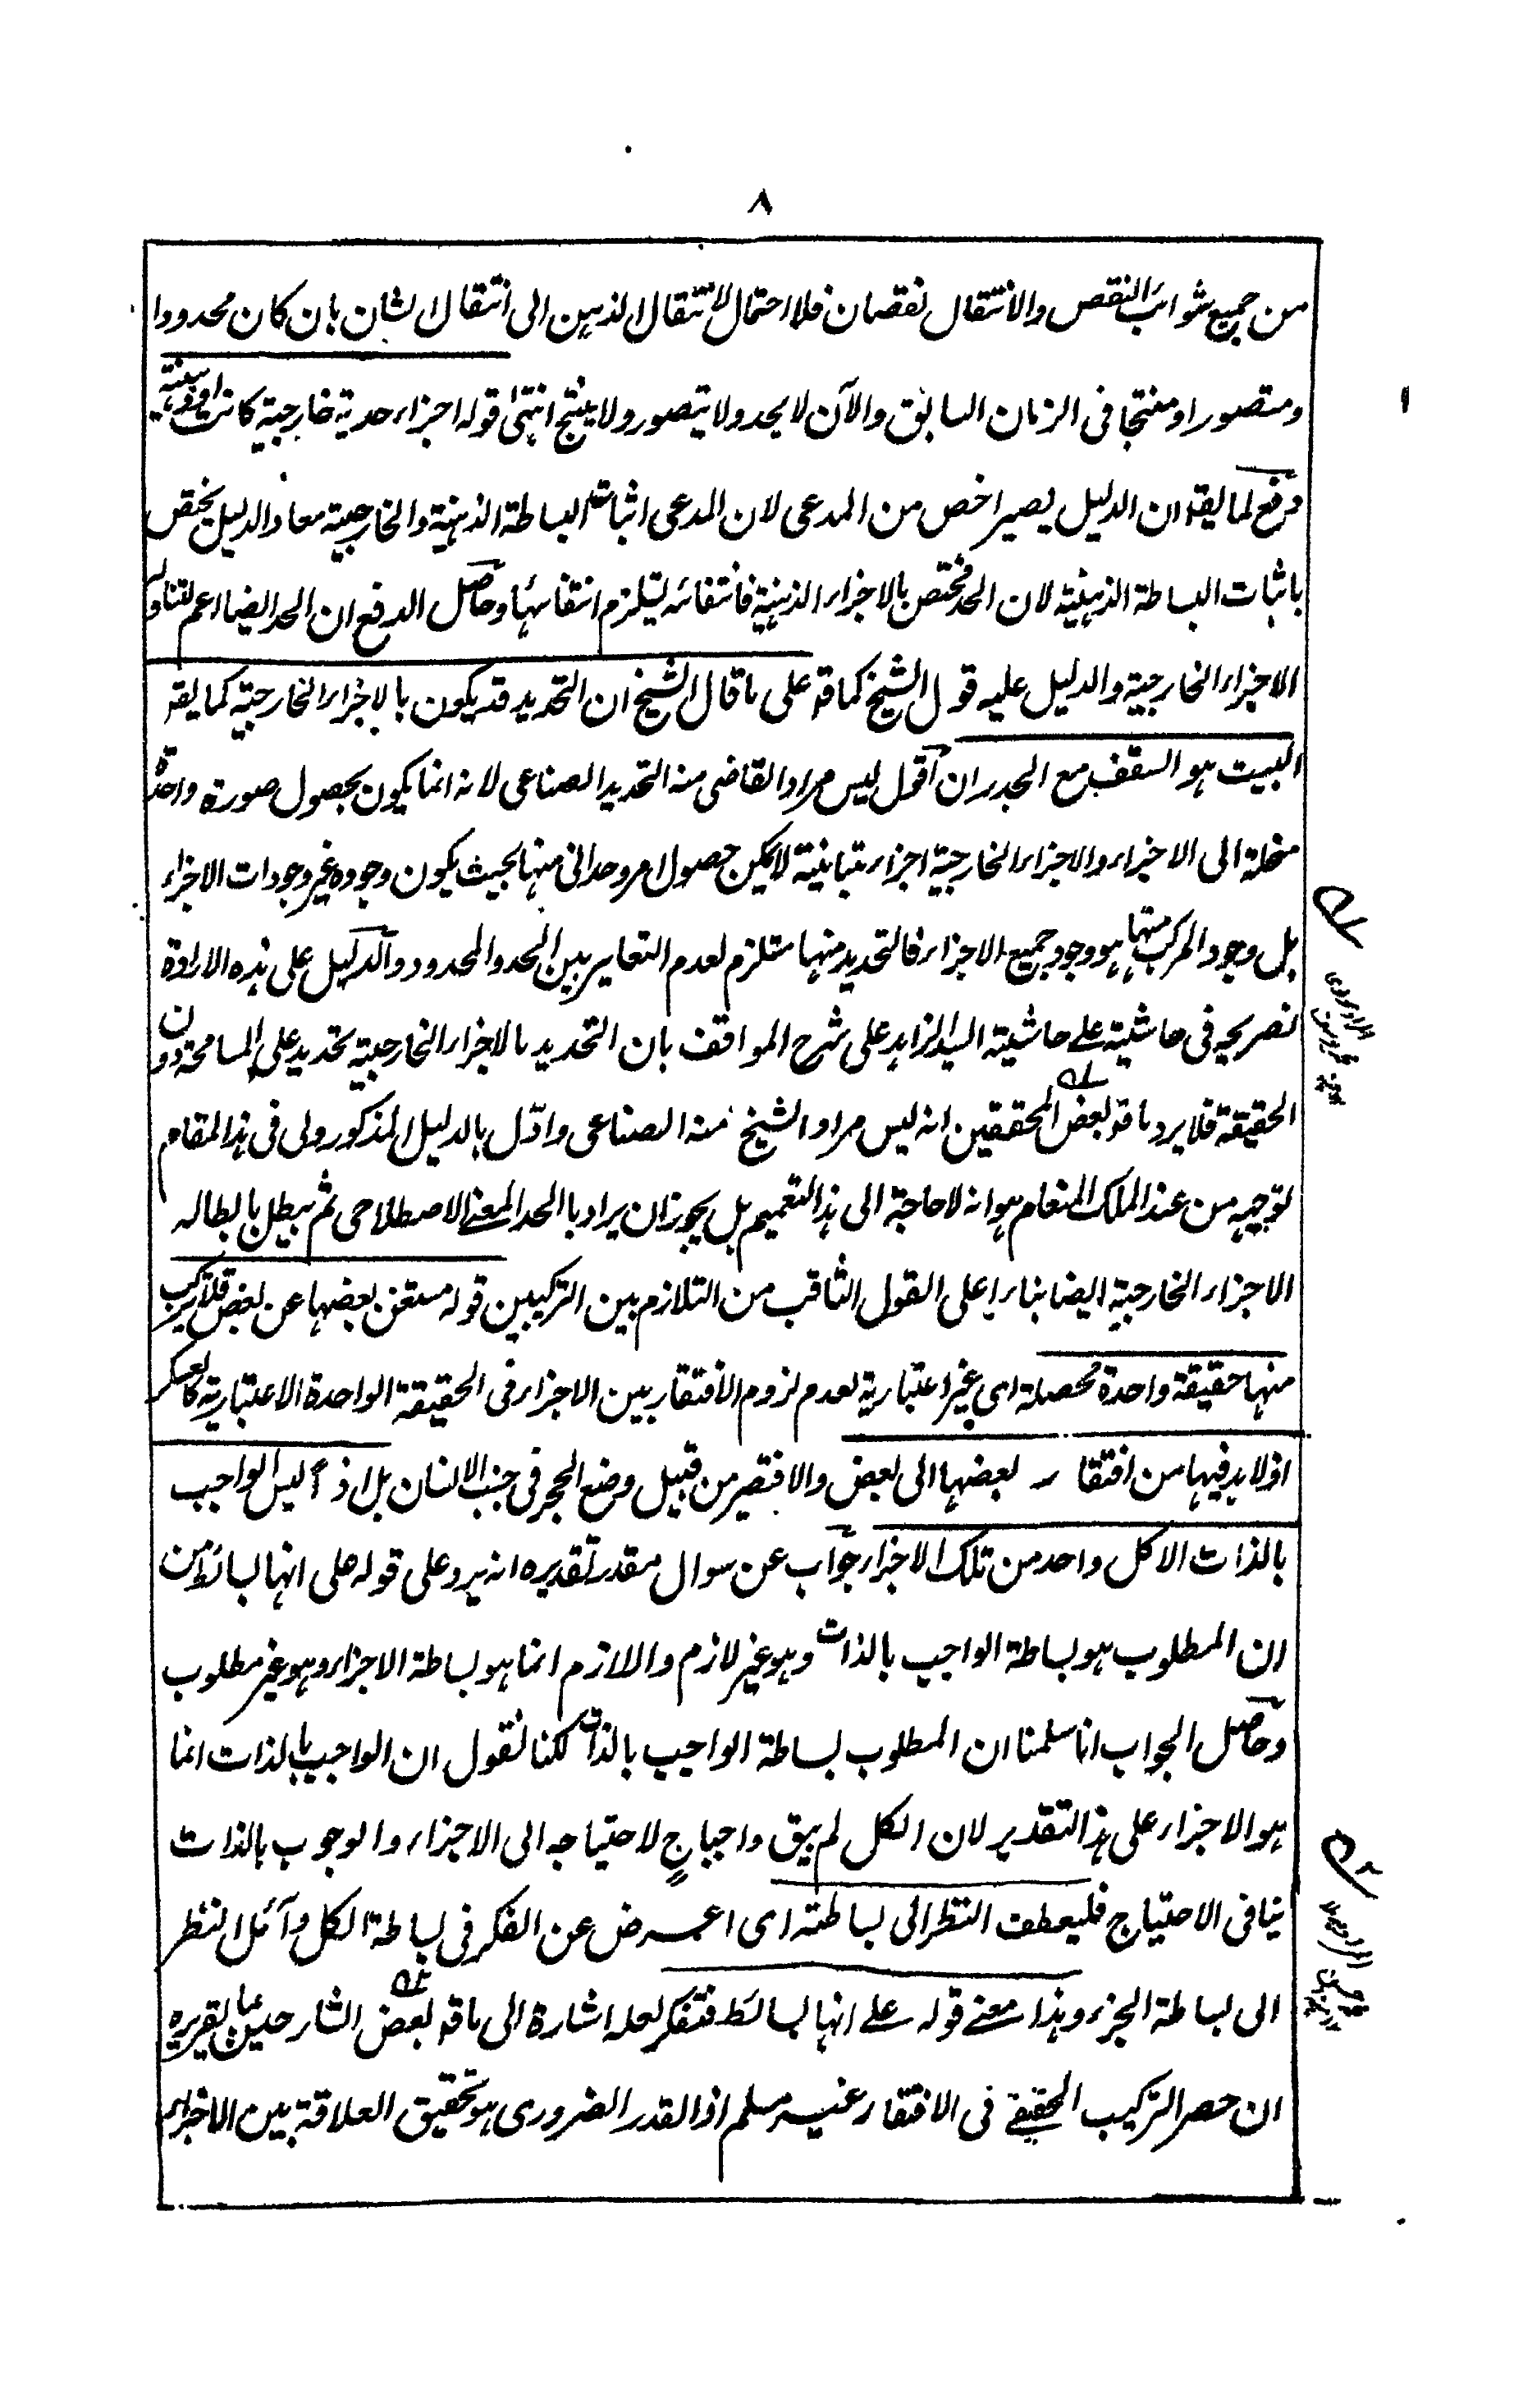 ٨
من جميع شوائب النقص والانتقال نقصان فلا احتمال لانتقال الذهن الى انتقال الشان بان كان محدودا
ومتصورا ومنتجا فى الزمان السابق والآن لا يحد ولا يتصور ولا ينتج انتهى قوله اجزاء حدية خارجية كانت او ذهنية
دفع لما يقه ان الدليل يصير اخص من المدعى لان المدعى اثبات البساطة الذهنية والخارجية معا والدليل يختص
باثبات البساطة الذهنية لان الحد مختص بالاجزاء الذهنية فانتفائه يستلزم انتفائها وحاصل الدفع ان الحد ايضا اعم لتناوله
الاجزاء الخارجية والدليل عليه قول الشيخ كما قه على ما قال الشيخ ان التحديد قد يكون بالاجزاء الخارجية كما يقه
البيت هو السقف مع الجدران اقول ليس مراد القاضى منه التحديد الصناعى لانه انما يكون بحصول صورة واحدة
منحلة الى الاجزاء والاجزاء الخارجية اجزاء متباينة لا يمكن حصول امر وحدانى منها بحيث يكون وجوده غير وجودات الاجزاء
بل وجود المركب منها هو وجود جميع الاجزاء فالتحديد منها مستلزم لعدم التغاير بين الحد والمحدود والدليل على هذه الارادة
تصريحه فى حاشيته على حاشية السيد الزاهد على شرح المواقف بان التحديد بالاجزاء الخارجية تحديد على المسامحة دون
الحقيقة فلا يرد ما قه بعض المحققين انه ليس مراد الشيخ منه الصناعى وادّل بالدليل المذكور ولى فى هذا المقام
توجيه من عند الملك المنعام هو انه لا حاجة الى هذا التعميم بل يجوز ان يراد بالحد المعنى الاصطلاحى ثم يبطل بابطاله
الاجزاء الخارجية ايضا بناء على القول الثاقب من التلازم بين التركيبين قوله مستغن بعضها عن بعض فلا تركب
منها حقيقة واحدة محصلة اى غير اعتبارية لعدم لزوم الافتقار بين الاجزاء فى الحقيقة الواحدة الاعتبارية كالعسكر
اذ لا بد فيها من افتقار بعضها الى بعض والا فتصير من قبيل وضع الحجر فى جنب الانسان بل اذاً ليس الواجب
بالذات الا كل واحد من تلك الاجزاء جواب عن سوال مقدر تقديره انه يرد على قوله على انها بسائط من
ان المطلوب هو بساطة الواجب بالذات وهو غير لازم واللازم انما هو بساطة الاجزاء وهو غير مطلوب
وحاصل الجواب انا سلمنا ان المطلوب بساطة الواجب بالذات لكنا نقول ان الواجب بالذات انما
هو الاجزاء على هذا التقدير لان الكل لم يبق واجبا ح لاحتياجه الى الاجزاء والوجوب بالذات
ينافى الاحتياج فليعطف النظر الى بساطته اى اعرض عن الفكر فى بساطة الكل وآئل النظر
الى بساطة الجزء وهذا معنى قوله على انها بسائط فتفكر لعله اشارة الى ما قه بعض الشارحين بما تقريره
ان حصر التركيب الحقيقى فى الافتقار غير مسلم اذ القدر الضرورى هو تحقيق العلاقة بين الاجزاء